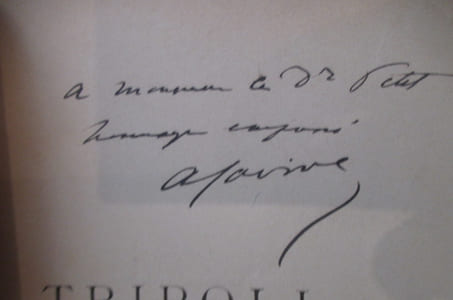 a monsieur le Dr Petit
hommage empressé
A Savine
TRIPOLI